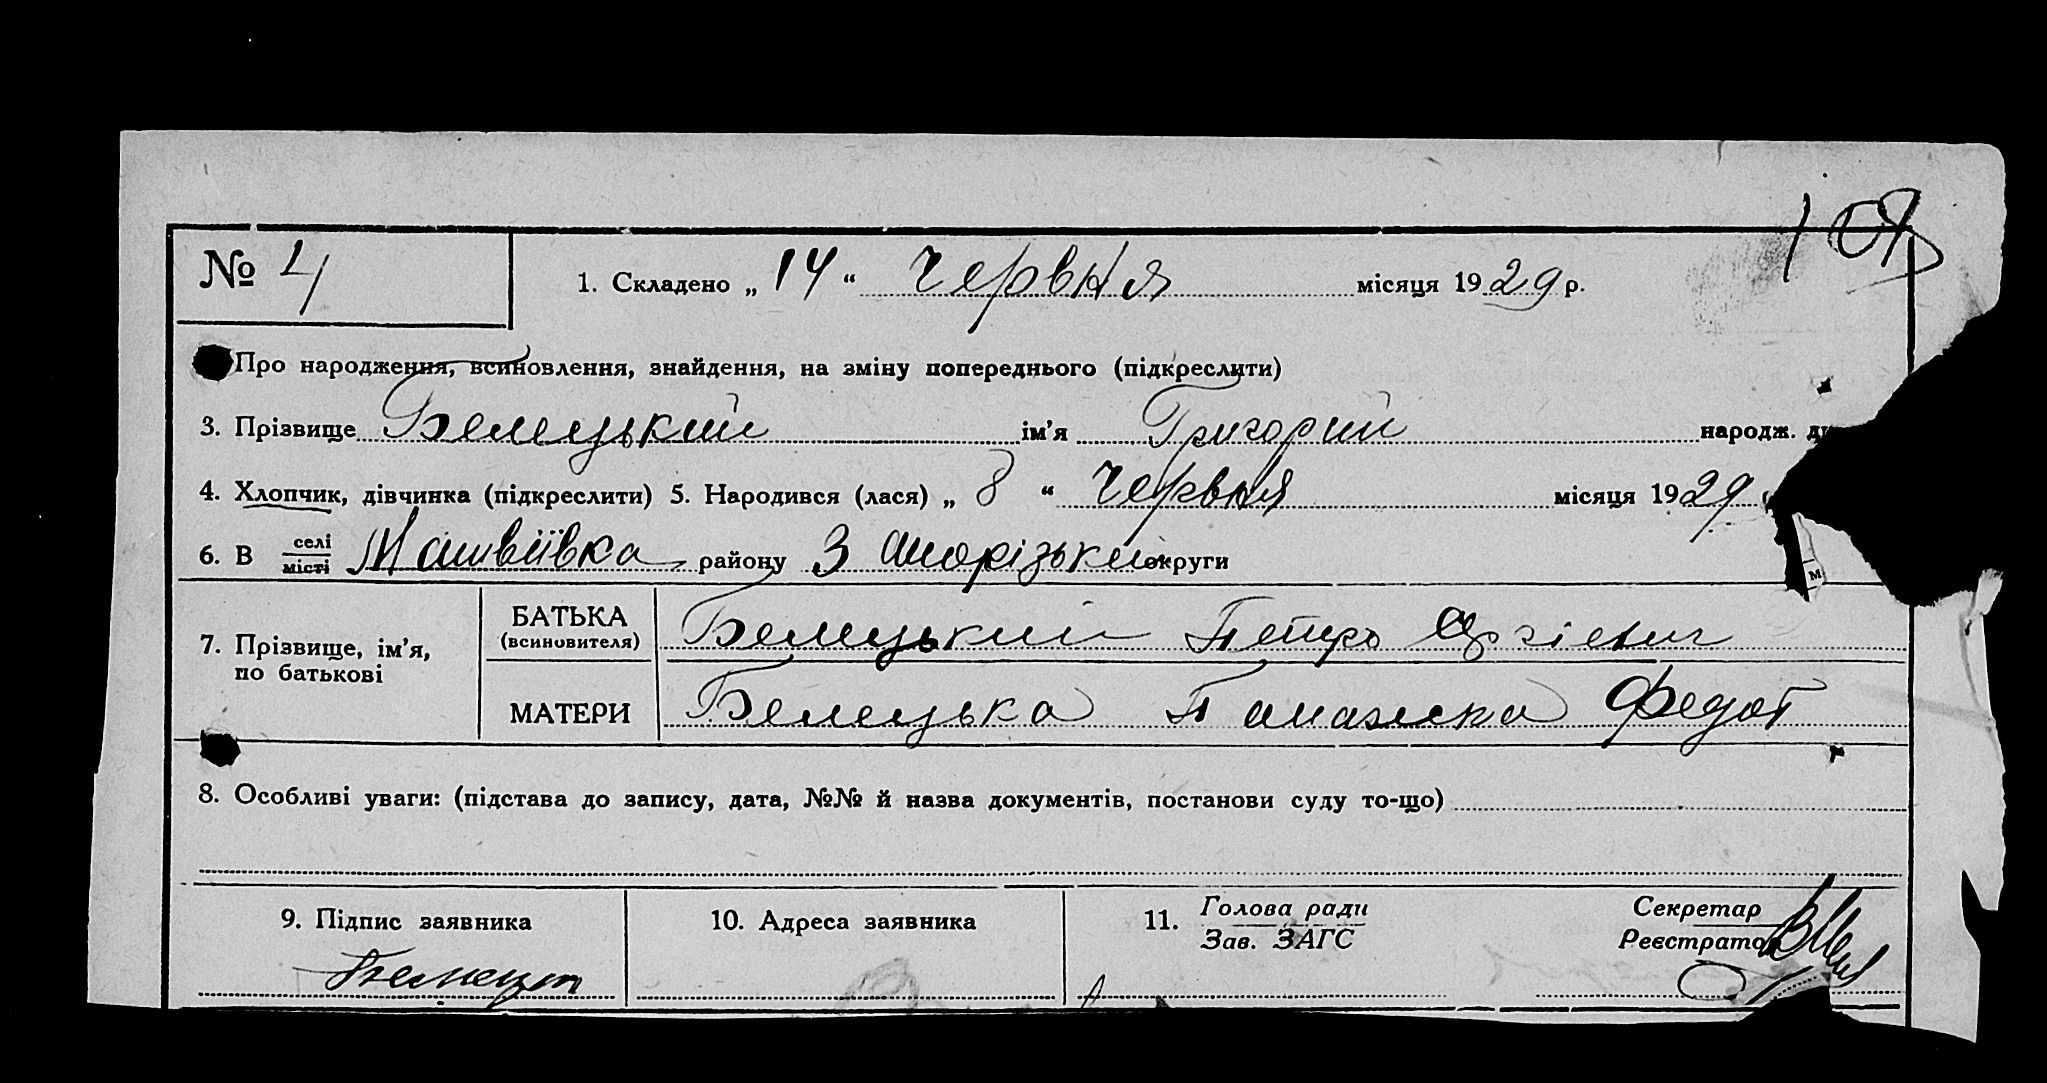 107
№ 4
1. Складено „ 14 “ Червня місяця 1929 р.
Про народження, всиновлення, знайдення, на зміну попереднього (підкреслити)
3. Прізвище Белецький ім'я Григорий народж.
4. Хлопчик, дівчинка (підкреслити) 5. Народився (лася) „ 8 “ Червня місяця 1929
6. В селі місті Матвіївка району Запорізький округи
7. Прізвище, ім'я, по батькові
БАТЬКА (всиновителя) Белецький Петро
МАТЕРИ Белецька Паражка Федот
8. Особливі уваги: (підстава до запису, дата, №№ й назва документів, постанови суду то-що)
9. Підпис заявника
10. Адреса заявника
11. Голова ради Зав. ЗАГС
Секретар Реєстратор
Белецк